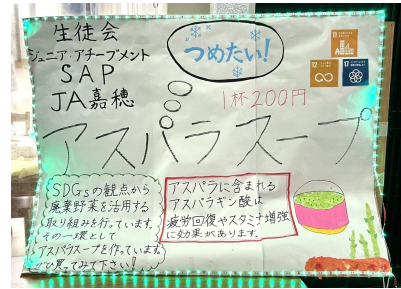 生徒会
ジュニア・アチーブメント
SAP
JA嘉穂
つめたい!
11
12
17
1杯200円
アスパラスープ
SDGsの観点から
廃棄野菜を活用する
取り組みを行っています。
その一環として
アスパラスープを作っています。
ぜひ買ってみて下さい!
アスパラに含まれる
アスパラギン酸は
疲労回復やスタミナ増強
に効果があります。